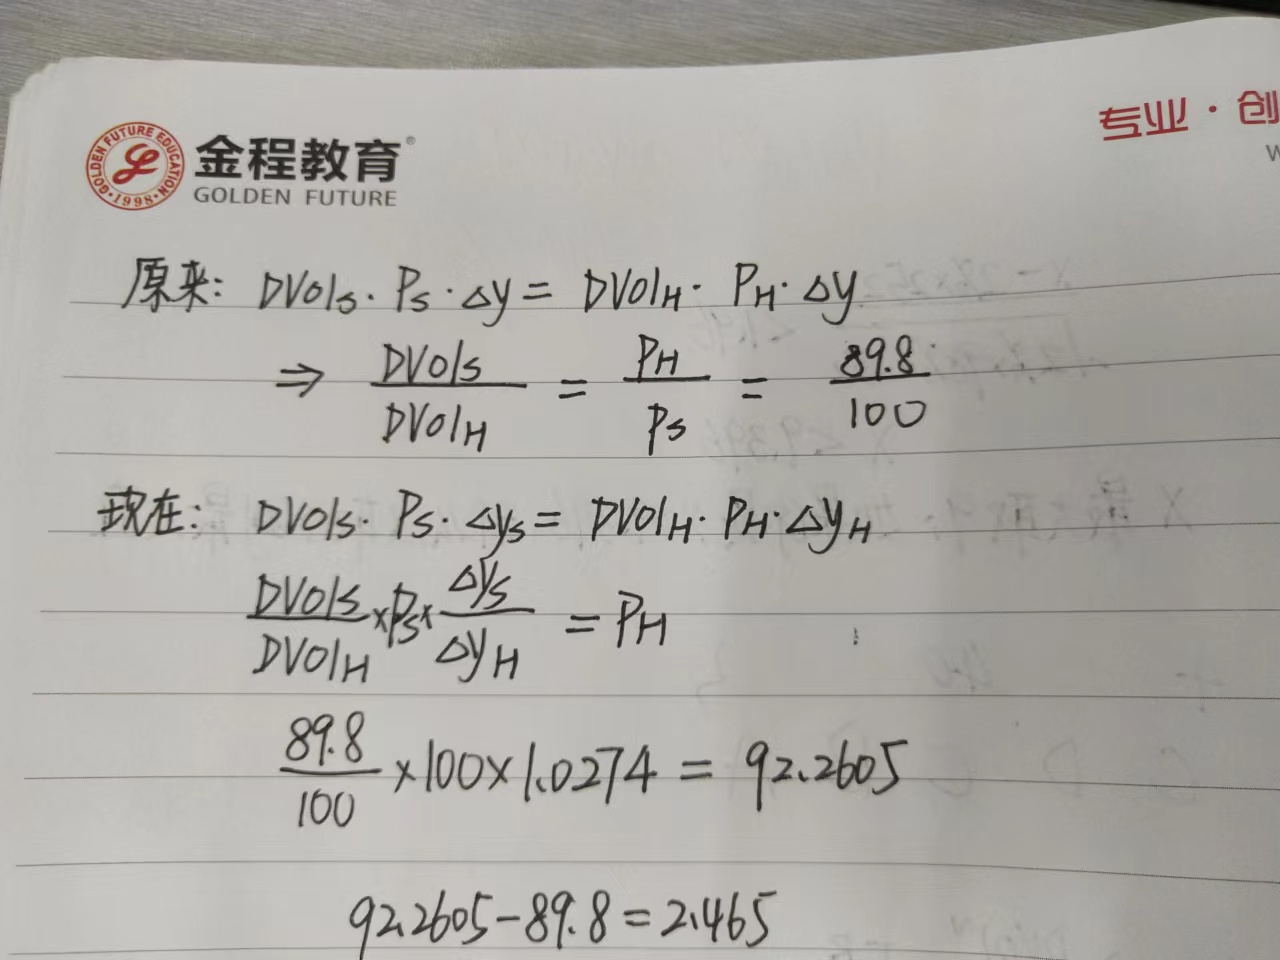 GOLDEN FUTURE EDUCATION
·1998·
金程教育®
GOLDEN FUTURE
专业·创
W
原来: DVols · Ps · Δy = DVolH · PH · Δy
⇒ DVols / DVolH = PH / Ps = 89.8 / 100
现在: DVols · Ps · Δys = DVolH · PH · ΔyH
DVols / DVolH × Ps × Δys / ΔyH = PH
89.8 / 100 × 100 × 1.0274 = 92.2605
92.2605 - 89.8 = 2.465